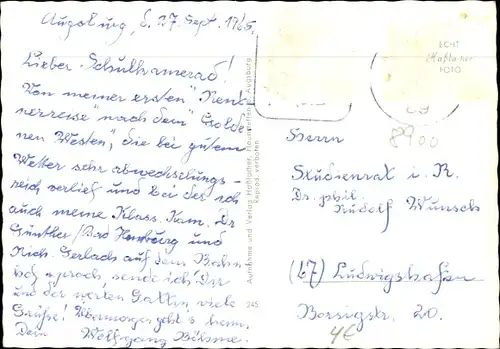 Augsburg, d. 27. Sept. 1965.
Lieber Schulkamerad!
Von meiner ersten "Rent-
nerreise" nach dem "Golde-
nen Westen", die bei gutem
Wetter sehr abwechslungs-
reich verlief und bei der ich
auch meine Klass. Kam. Dr
Günther/Bad Homburg und
Rich. Gerlach auf dem Bahn
hof sprach, sende ich Dir
und der werten Gattin viele
Grüße! Übermorgen geht's heim.
Dein Wolfgang Böhme.
Aufnahme und Verlag Haßlacher, Haunstetten b. Augsburg
Reprod. verboten
245
ECHT
FOTO
89
8900
Herrn
Studienrat i. R.
Dr. phil.
Rudolf Wunsch
(67) Ludwigshafen
Borsigstr. 20.
4€